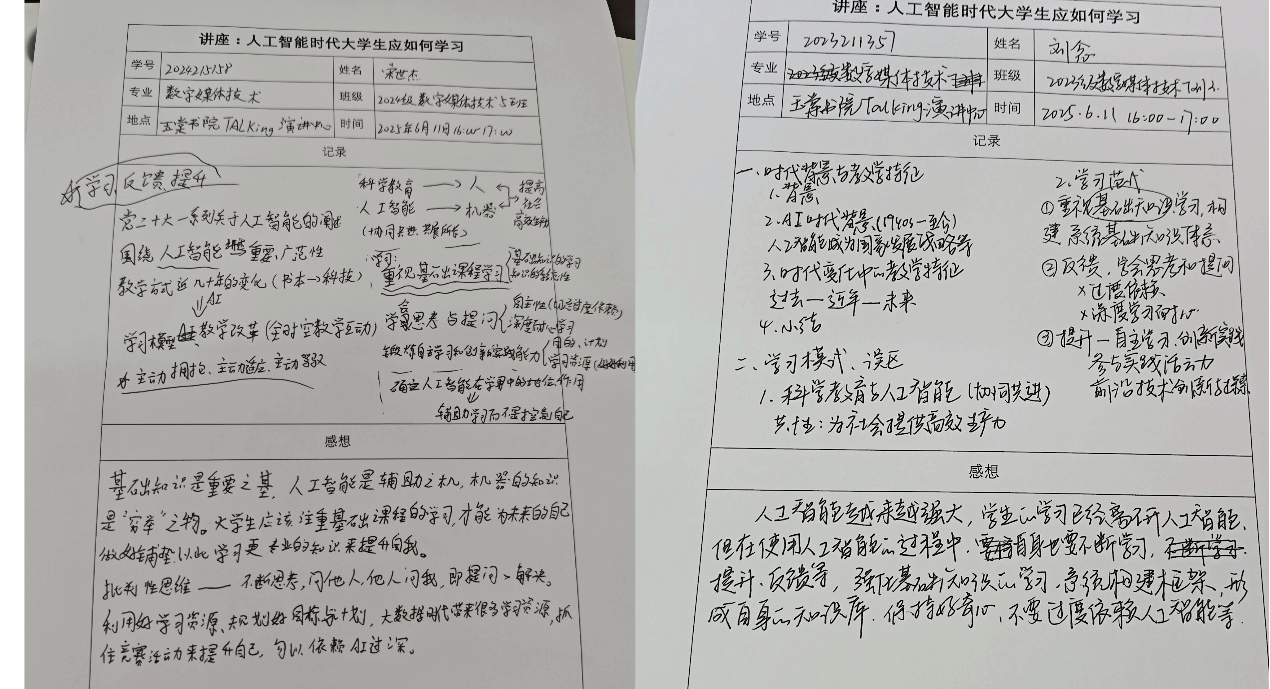 讲座：人工智能时代大学生应如何学习
学号 2024215158 姓名 宋世杰
专业 数字媒体技术 班级 2024级数字媒体技术5班
地点 玉棠书院TALKing演讲 时间 2025年6月11日16:00-17:00
记录
学习,反馈,提升
科学教育 → 人 提高
人工智能 → 机器 社会
(协同共进,
党二十大一系列关于人工智能的阐述
围绕人工智能 重要,广范性
教学方式近几十年的变化(书本→科技)
AI
学习模型 教学改革(全时空教学互动)
主动拥抱、主动适应、主动驾驭
学习:
重视基础课程学习 基础知识的学习
知识的系统性
学会思考与提问 自主性(切忌过度依赖)
深度 学习
锻炼自主学习和创新实践能力 目的、计划
学习资源
确定人工智能在学习中的地位作用
辅助学习而不是 自己
感想
基础知识是重要之基，人工智能是辅助之机,机器的知识
是“穷举”之物。大学生应该注重基础课程的学习,才能为未来的自己
做好铺垫,以此学习更专业的知识来提升自我。
批判性思维——不断思考,问他人,他人问我,即提问>解决。
利用好学习资源、规划好目标与计划,大数据时代带来很多学习资源,抓
住竞赛活动来提升自己,勿以依赖AI过深。
讲座：人工智能时代大学生应如何学习
学号 2023211357 姓名 刘念
专业 2023级数字媒体技术 班级 2023级数字媒体技术
地点 玉棠书院Talking演讲中心 时间 2025.6.11 16:00-17:00
记录
一、时代背景与教学特征
1.背景
2.AI时代背景(1940s-至今)
人工智能成为国家发展战略等
3.时代变化中的教学特征
过去—近年—未来
4.小结
二、学习模式、误区
1.科学教育与人工智能(协同共进)
共性:为社会提供高效生产力
2.学习范式
①重视基础知识学习,构
建系统基础知识体系
②反馈,学会思考和提问
×过度依赖
×深度学习
③提升—自主学习,创新实践
参与实践活动
前沿技术创新与
感想
人工智能越来越强大,学生的学习已经离不开人工智能,
但在使用人工智能的过程中,自身也要不断学习,不断学习
提升、反馈等,强化基础知识的学习,系统构建框架,形
成自身的知识库,保持好奇心,不要过度依赖人工智能等.